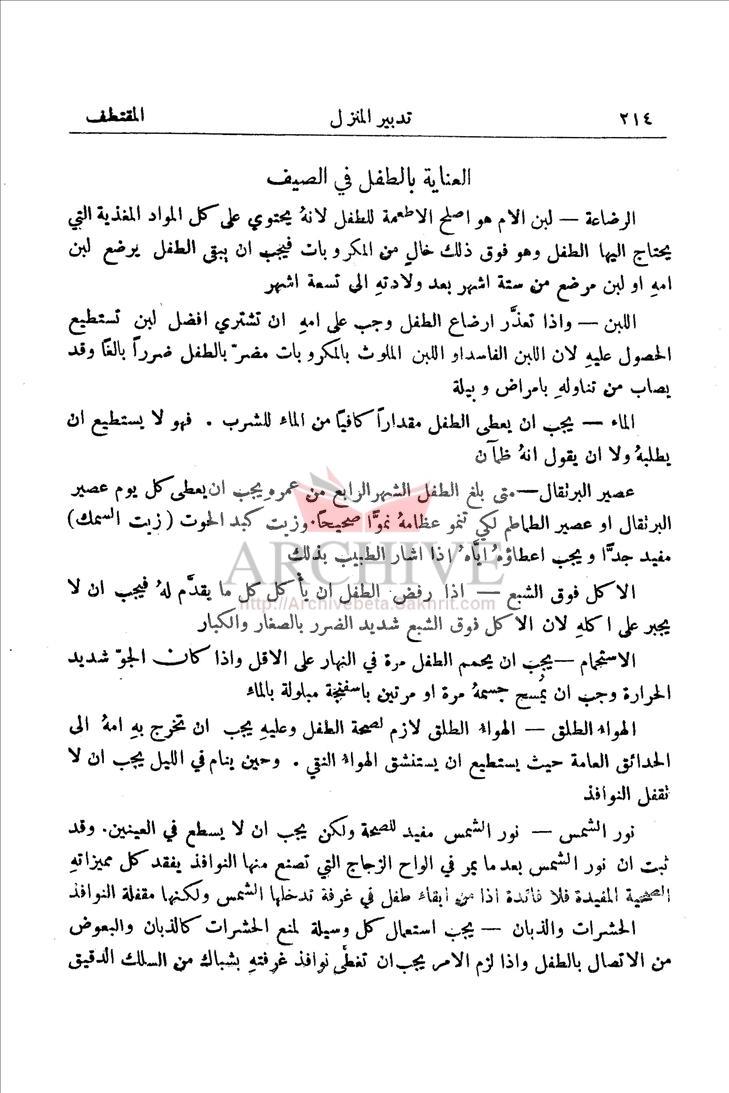 ٢١٤ تدبير المنزل المقتطف
العناية بالطفل في الصيف
الرضاعة — لبن الام هو اصلح الاطعمة للطفل لانهُ يحتوي على كل المواد المغذية التي
يحتاج اليها الطفل وهو فوق ذلك خالٍ من المكروبات فيجب ان يبقى الطفل يرضع لبن
امهِ او لبن مرضع من ستة اشهر بعد ولادتهِ الى تسعة اشهر
اللبن — واذا تعذَّر ارضاع الطفل وجب على امهِ ان تشتري افضل لبن تستطيع
الحصول عليهِ لان اللبن الفاسد او اللبن الملوث بالمكروبات مضرّ بالطفل ضرراً بالغًا وقد
يصاب من تناولهِ بامراض وبيلة
الماء — يجب ان يعطى الطفل مقداراً كافيًا من الماء للشرب . فهو لا يستطيع ان
يطلبهُ ولا ان يقول انهُ ظمآن
عصير البرتقال — متى بلغ الطفل الشهر الرابع من عمره يجب ان يعطى كل يوم عصير
البرتقال او عصير الطماطم لكي تنمو عظامهُ نموًّا صحيحًا. وزيت كبد الحوت ( زيت السمك )
مفيد جدًّا ويجب اعطاؤهُ اياهُ اذا اشار الطبيب بذلك
ARCHIVE
الاكل فوق الشبع — اذا رفض الطفل ان يأكل كل ما يقدَّم لهُ فيجب ان لا
http://Archivebeta.Sakhrit.com
يجبر على اكلهِ لان الاكل فوق الشبع شديد الضرر بالصغار والكبار
الاستحمام — يجب ان يحمم الطفل مرة في النهار على الاقل واذا كان الجوّ شديد
الحرارة وجب ان يُمسح جسمهُ مرة او مرتين باسفنجة مبلولة بالماء
الهواء الطلق — الهواء الطلق لازم لصحة الطفل وعليهِ يجب ان تخرج بهِ امهُ الى
الحدائق العامة حيث يستطيع ان يستنشق الهواء النقي . وحين ينام في الليل يجب ان لا
تقفل النوافذ
نور الشمس — نور الشمس مفيد للصحة ولكن يجب ان لا يسطع في العينين. وقد
ثبت ان نور الشمس بعد ما يمر في الواح الزجاج التي تصنع منها النوافذ يفقد كل مميزاتهِ
الصحية المفيدة فلا فائدة اذا من ابقاء طفل في غرفة تدخلها الشمس ولكنها مقفلة النوافذ
الحشرات والذبان — يجب استعمال كل وسيلة لمنع الحشرات كالذبان والبعوض
من الاتصال بالطفل واذا لزم الامر يجب ان تغطَّى نوافذ غرفتهِ بشباك من السلك الدقيق